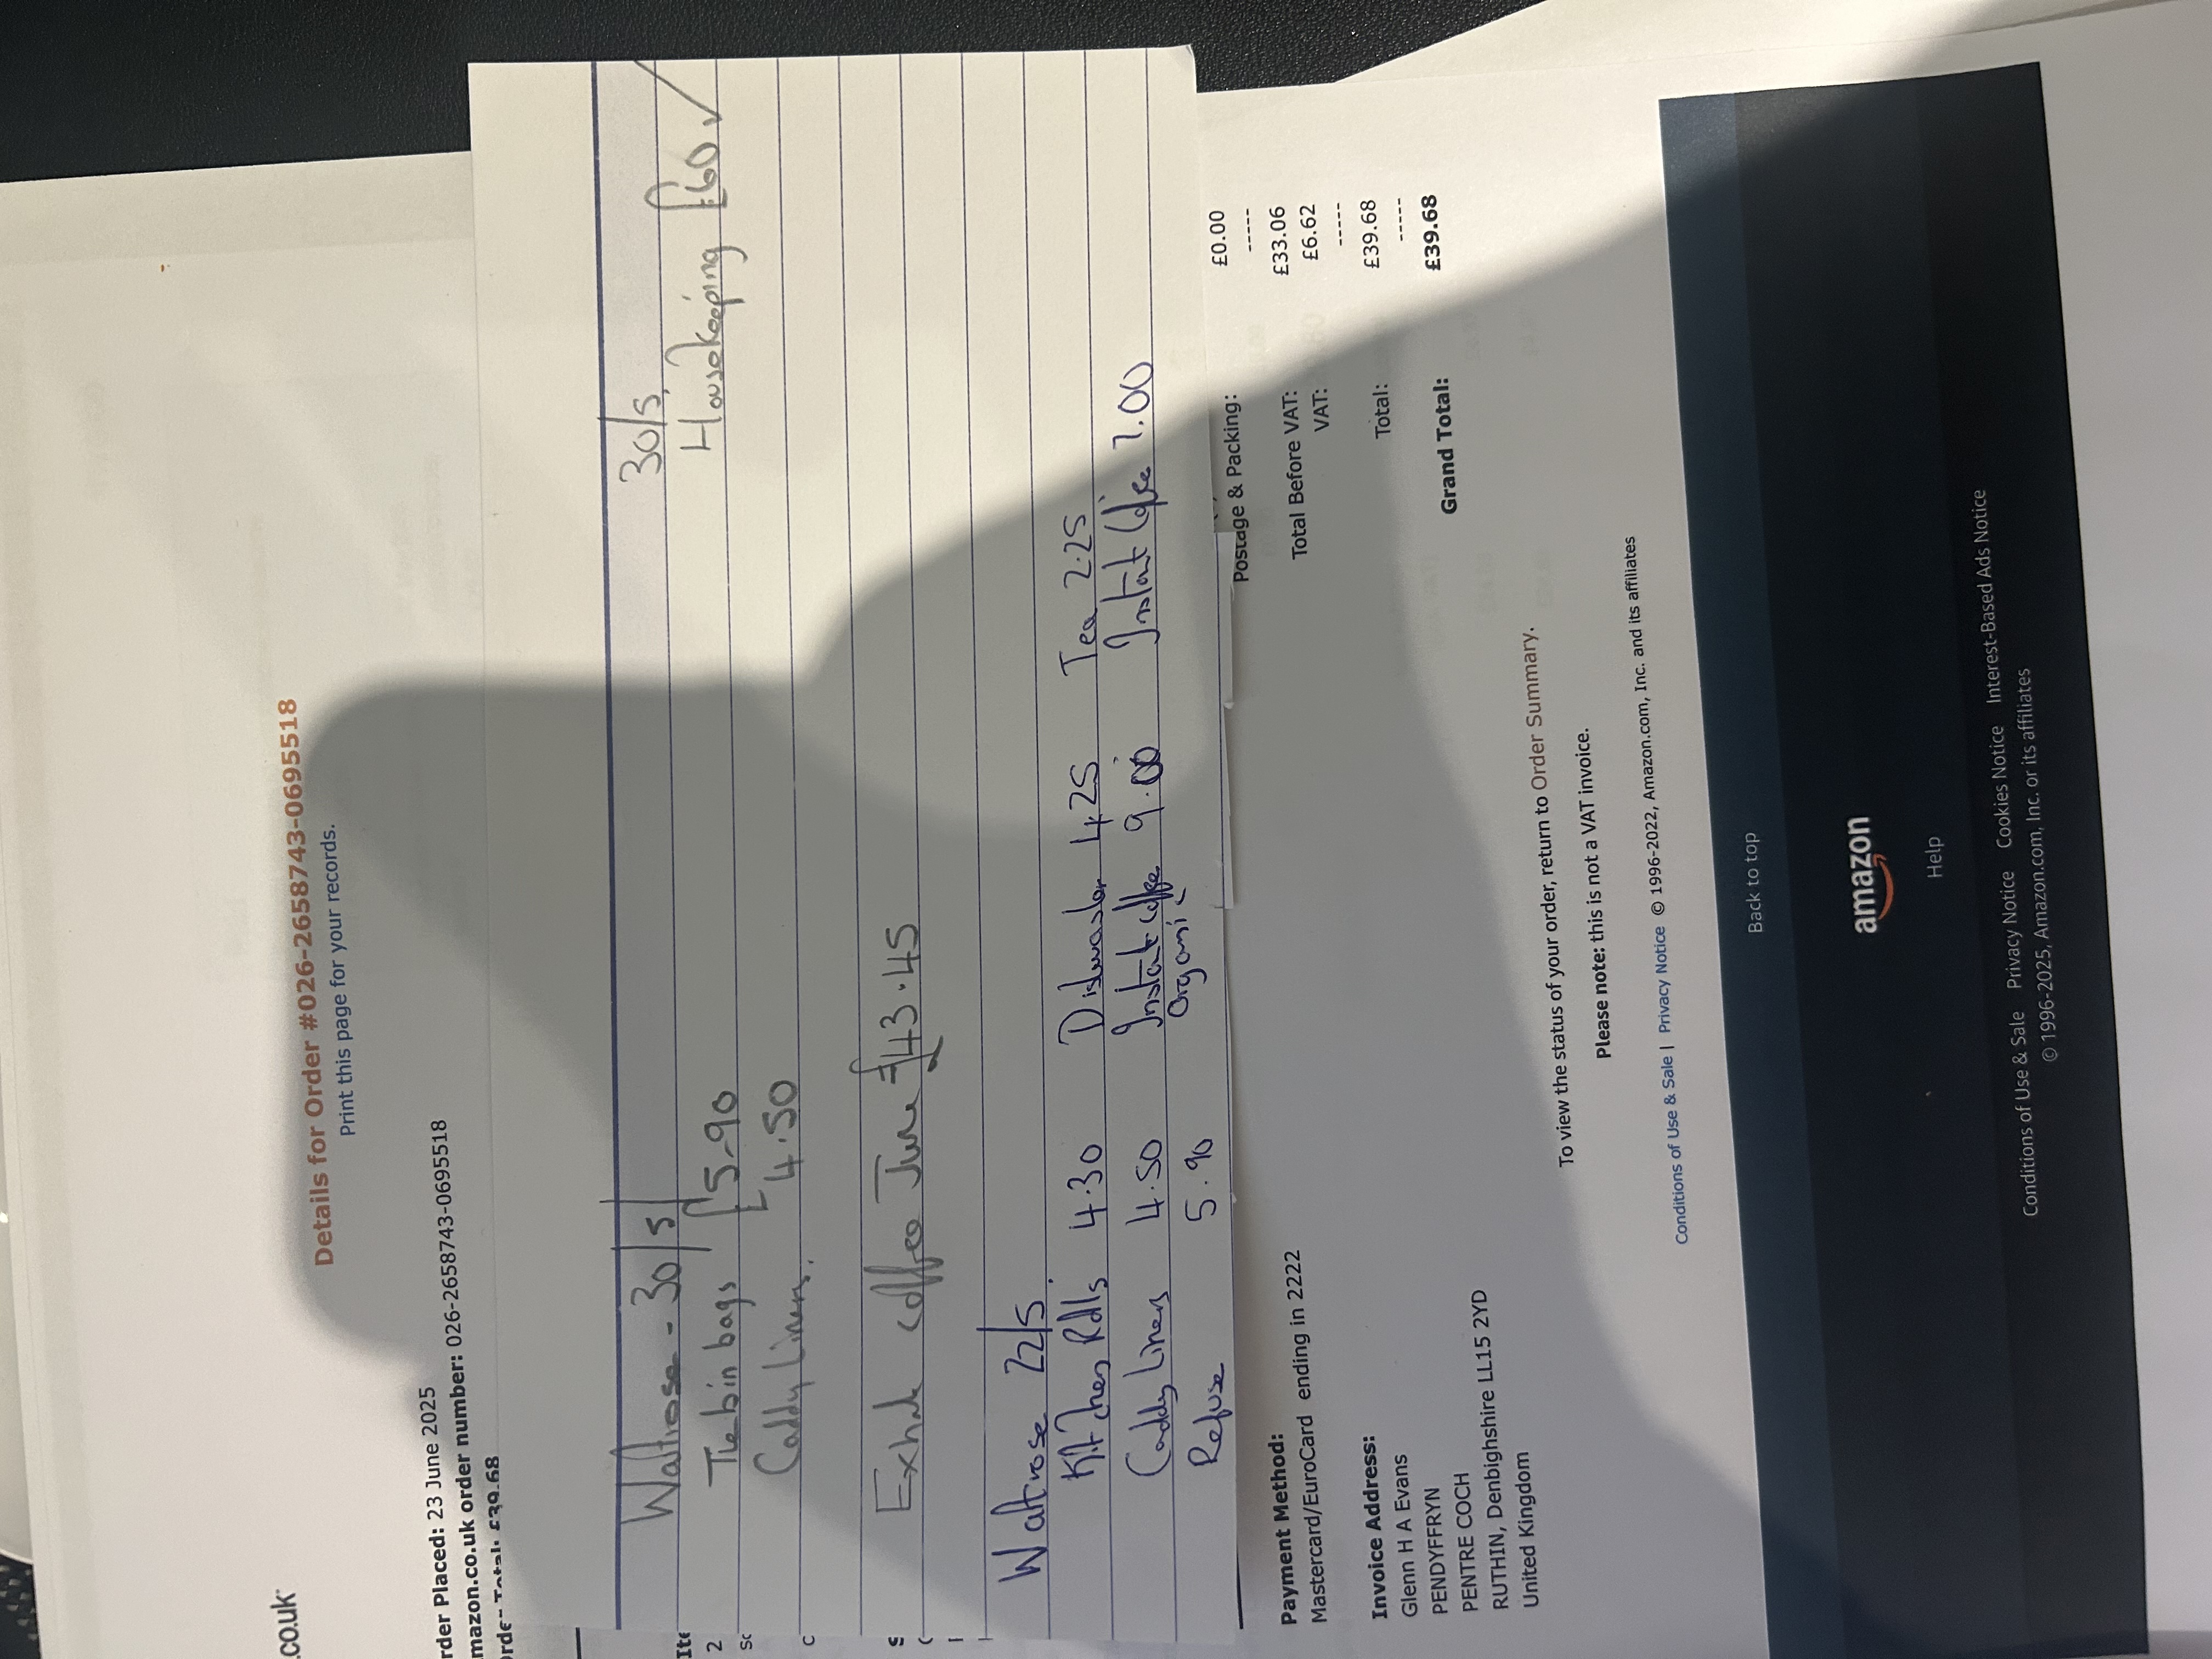 .co.uk
Details for Order #026-2658743-0695518
Print this page for your records.
rder Placed: 23 June 2025
mazon.co.uk order number: 026-2658743-0695518
Total: £39.68
Waitrose - 30/5
Tie bin bags £5-90
Caddy Liners. 4.50
30/5,
Housekeeping £60 ✓
coffee June £43.45
Waitrose 22/5.
Kitchen Rolls 4.30 Dishwasher 4.25 Tea 2.25
Caddy Liners 4.50 Instant coffee 9.00 Instant Coffee 7.00
Organic
Refuse 5.90
2
Postage & Packing: £0.00
-----
Total Before VAT: £33.06
VAT: £6.62
-----
Total: £39.68
-----
Grand Total: £39.68
Payment Method:
Mastercard/EuroCard ending in 2222
Invoice Address:
Glenn H A Evans
PENDYFFRYN
PENTRE COCH
RUTHIN, Denbighshire LL15 2YD
United Kingdom
To view the status of your order, return to Order Summary.
Please note: this is not a VAT invoice.
Conditions of Use & Sale | Privacy Notice © 1996-2022, Amazon.com, Inc. and its affiliates
Back to top
amazon
Help
Conditions of Use & Sale Privacy Notice Cookies Notice Interest-Based Ads Notice
© 1996-2025, Amazon.com, Inc. or its affiliates